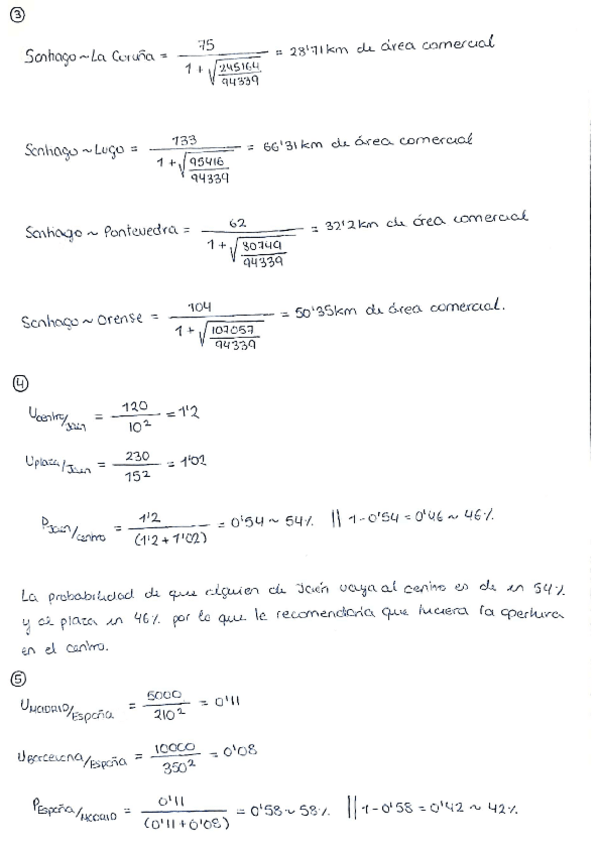 ③
Santiago ~ La Coruña = 75 / (1 + √(245164 / 94339)) = 28'71 km de área comercial
Santiago ~ Lugo = 133 / (1 + √(95416 / 94339)) = 66'31 km de área comercial
Santiago ~ Pontevedra = 62 / (1 + √(80749 / 94339)) = 32'2 km de área comercial
Santiago ~ Orense = 104 / (1 + √(107057 / 94339)) = 50'35 km de área comercial.
④
Ucentro/Jaén = 120 / 10² = 1'2
Uplaza/Jaen = 230 / 15² = 1'02
PJaén/centro = 1'2 / (1'2 + 1'02) = 0'54 ~ 54% || 1 - 0'54 = 0'46 ~ 46%
La probabilidad de que alguien de Jaén vaya al centro es de un 54%
y al plaza un 46% por lo que le recomendaría que hiciera la apertura
en el centro.
⑤
UMADRID/España = 5000 / 210² = 0'11
UBarcelona/España = 10000 / 350² = 0'08
PEspaña/MADRID = 0'11 / (0'11 + 0'08) = 0'58 ~ 58% || 1 - 0'58 = 0'42 ~ 42%